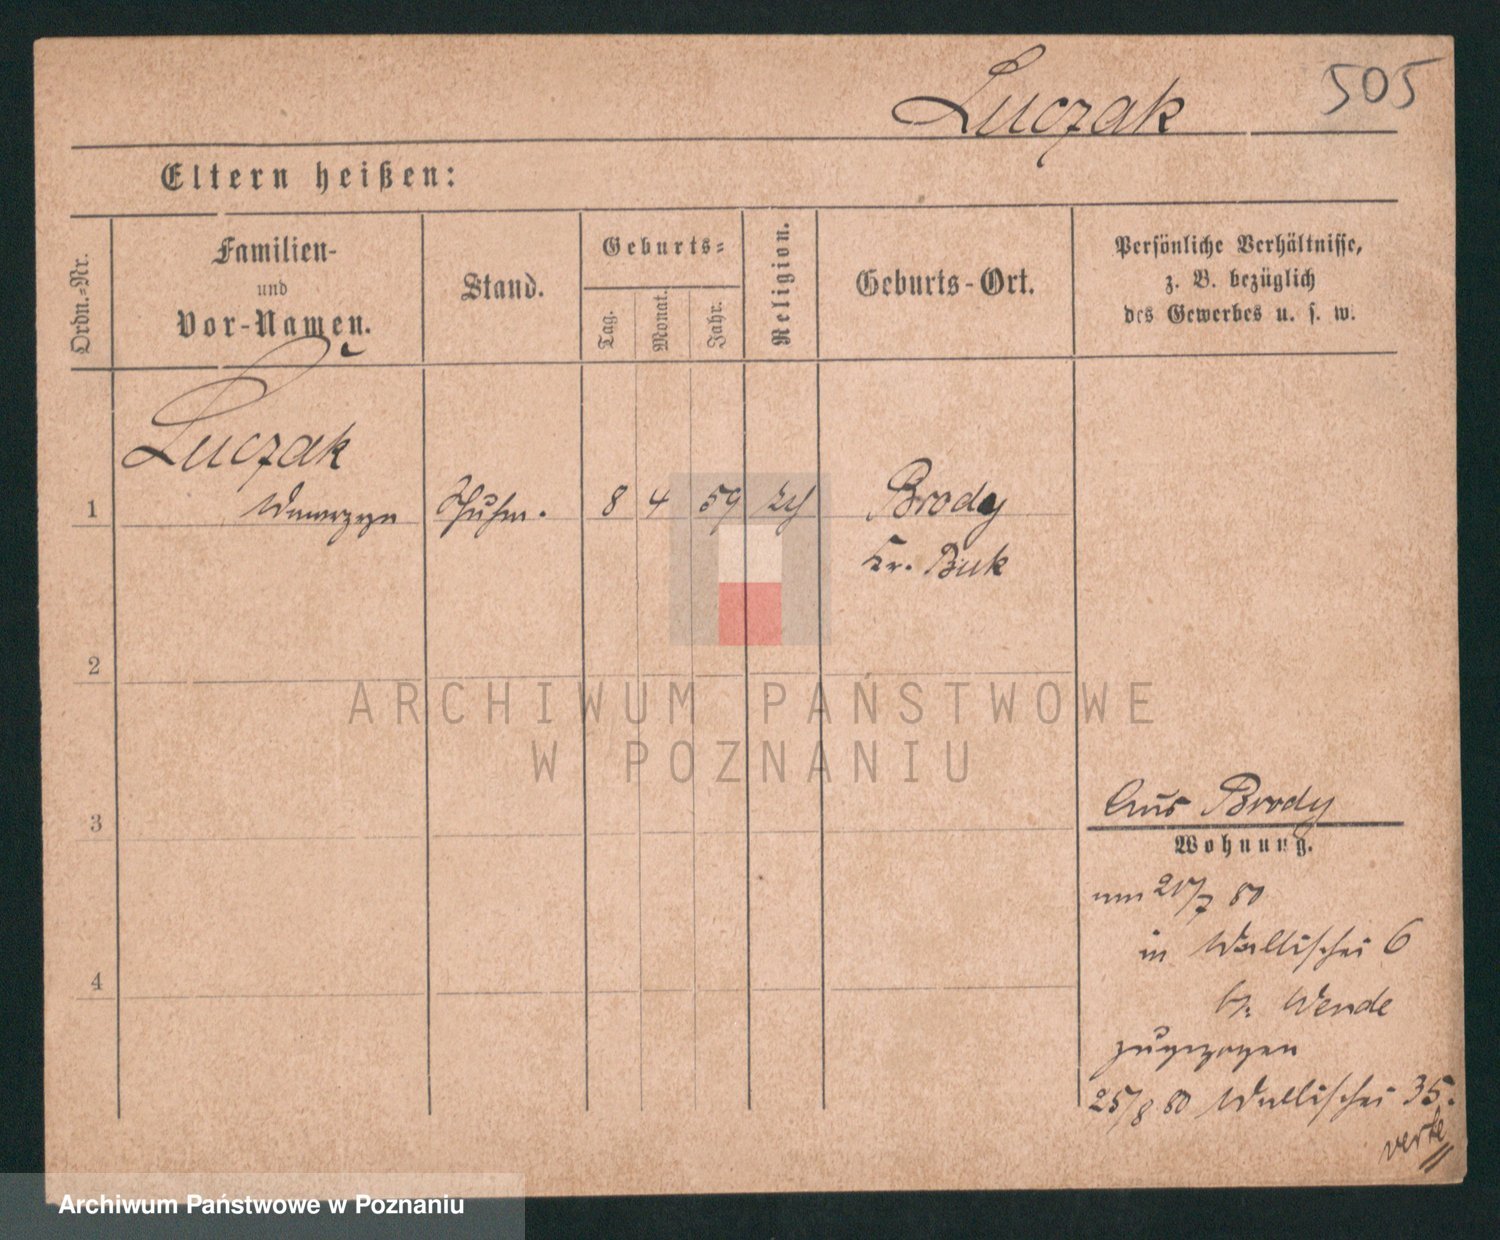 505
Luczak
Eltern heißen:
Ordn.-Nr.
Familien-
und
Vor-Namen.
Stand.
Geburts-
Tag.
Monat.
Jahr.
Religion.
Geburts-Ort.
Persönliche Verhältnisse,
z. B. bezüglich
des Gewerbes u. s. w.
Luczak
1 Wawrzyn Schuhm. 8 4 59 Brody
Kr. Buk
2
3
4
Aus Brody
Wohnung.
80
in Wallischei 6
b. Wende
zugezogen
25/8 80 Wallischei 35.
verte
ARCHIWUM PAŃSTWOWE
W POZNANIU
Archiwum Państwowe w Poznaniu